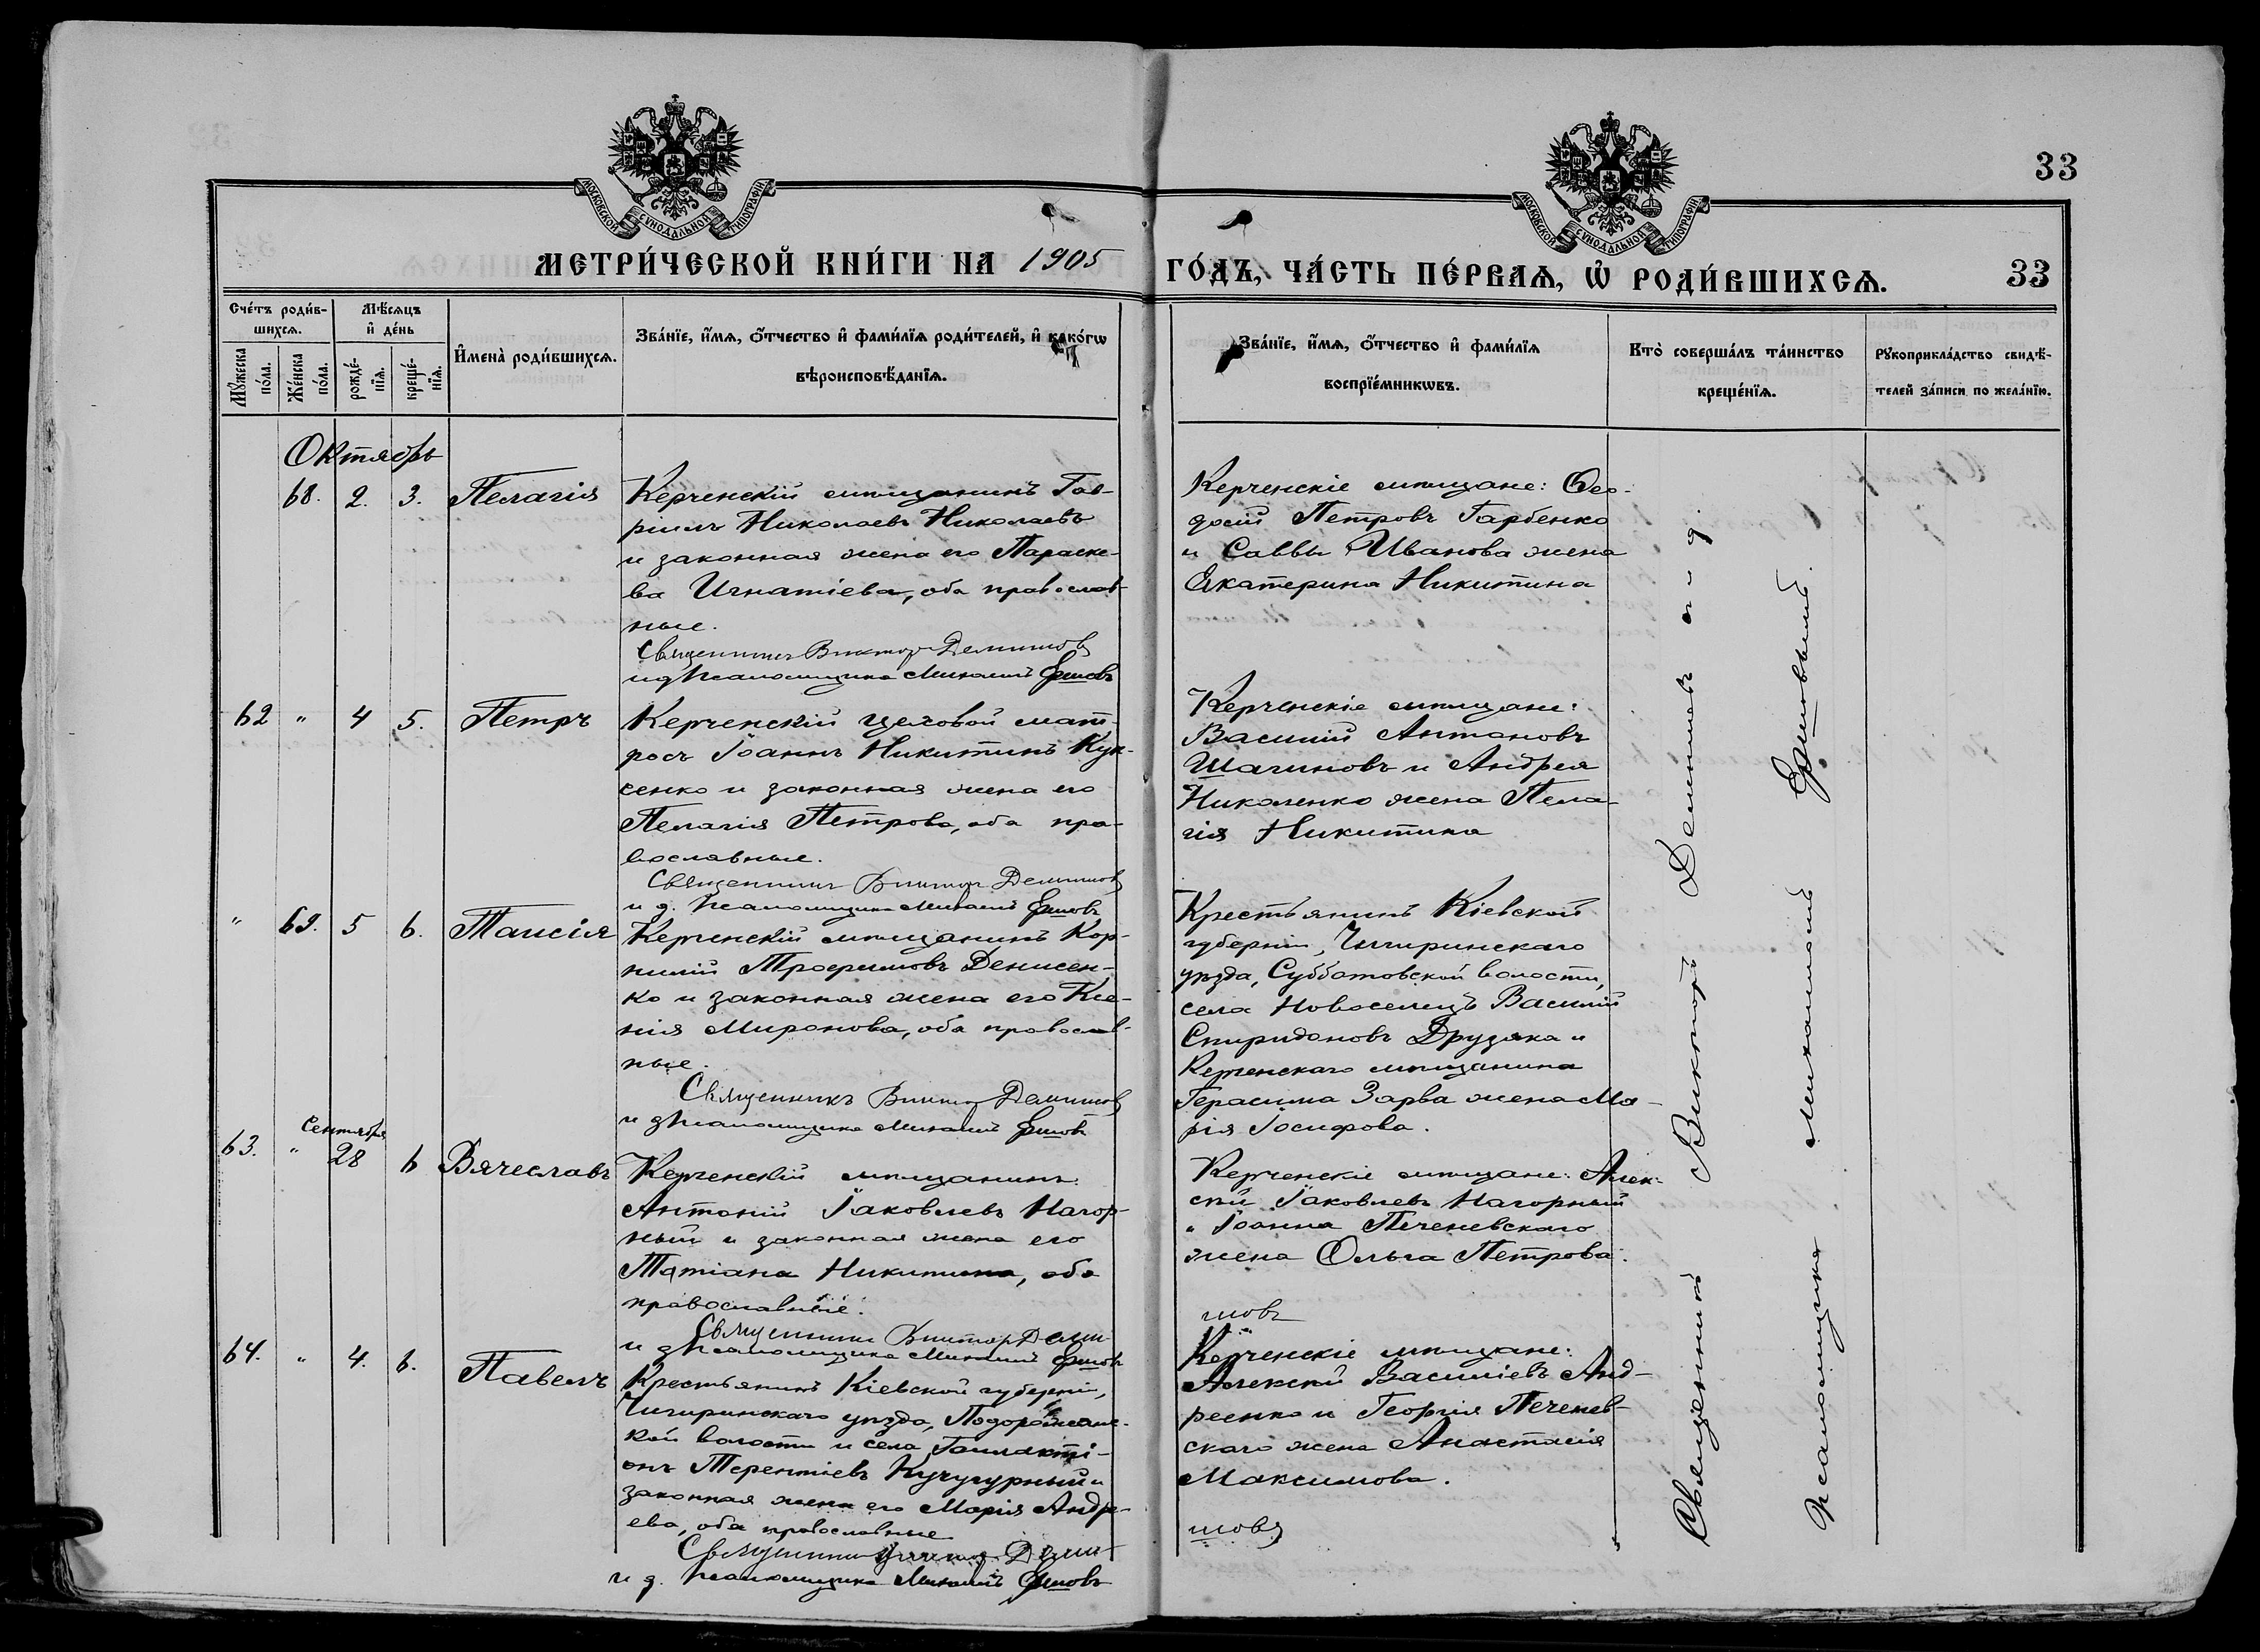 33
МОСКОВСКОЙ СѴНОДАЛЬНОЙ ТИПОГРАФІИ
МОСКОВСКОЙ СѴНОДАЛЬНОЙ ТИПОГРАФІИ
МЕТРИ́ЧЕСКОЙ КНИ́ГИ НА 1905 ГО́ДЪ, ЧА́СТЬ ПЕ́РВАѦ, Ѡ҆ РОДИ́ВШИХСѦ. 33
Сче́тъ роди́в-
шихсѧ.
Мꙋ́жеска
по́ла.
Же́нска
по́ла.
Мѣ́сѧцъ
и҆ де́нь
рожде́-
нїѧ.
креще́-
нїѧ.
И҆мена̀ роди́вшихсѧ.
Зва́нїе, и҆́мѧ, ѻ҆́тчество и҆ фами́лїѧ роди́телей, и҆ како́гѡ
вѣроисповѣ́данїѧ.
Зва́нїе, и҆́мѧ, ѻ҆́тчество и҆ фами́лїѧ
воспрїе́мникѡвъ.
Кто̀ соверша́лъ та́инство
креще́нїѧ.
Рꙋкоприкла́дство свидѣ́-
телей за́писи по жела́нїю.
Октябрь
68. 2. 3. Пелагія
Керченскій мѣщанинъ Гав-
ріилъ Николаевъ Николаевъ
и законная жена его Параске-
ва Игнатіева, оба православ-
ные.
Священникъ Викторъ Деминовъ
и д псаломщика Михаилъ Ершовъ
Керченскіе мѣщане: Ѳео-
досій Петровъ Гарбенко
и Саввы Иванова жена
Екатерина Никитина
62 " 4 5. Петръ
Керченскій цеховой мат-
росъ Іоаннъ Никитинъ Кук-
сенко и законная жена его
Пелагія Петрова, оба пра-
вославные.
Священникъ Викторъ Деминовъ
и д. псаломщика Михаилъ Ершовъ
Керченскіе мѣщане:
Василій Антоновъ
Шагиновъ и Андрея
Николенко жена Пела-
гія Никитина
" 69. 5 6. Таисія
Керченскій мѣщанинъ Кор-
нилій Трофимовъ Денисен-
ко и законная жена его Ксе-
нія Миронова, оба православ-
ные.
Священникъ Викторъ Деминовъ
и д псаломщика Михаилъ Ершовъ
Крестьянинъ Кіевской
губерніи, Чигиринскаго
уѣзда, Субботовской волости,
села Новоселецъ Василій
Спиридоновъ Друзяка и
Керченскаго мѣщанина
Герасима Зарва жена Ма-
рія Іосифова.
63. " Сентября 28 6 Вячеславъ
Керченскій мѣщанинъ
Антоній Іаковлевъ Нагор-
ный и законная жена его
Татіана Никитина, оба
православные.
Священникъ Викторъ Деми-
и д псаломщика Михаилъ Ершовъ
Керченскіе мѣщане: Алек-
сѣй Іаковлевъ Нагорный
и Іоанна Печеневскаго
жена Ольга Петрова.
новъ
64. " 4. 6. Павелъ
Крестьянинъ Кіевской губерніи,
Чигиринскаго уѣзда,
кой волости и села Галакті-
онъ Терентіевъ Кучугурный и
законная жена его Марія Андре-
ева, оба православные
Священникъ Викторъ Деми-
и д. псаломщика Михаилъ Ершовъ
Керченскіе мѣщане:
Алексѣй Василіевъ Анд-
реенко и Георгія Печенев-
скаго жена Анастасія
Максимова.
новъ
Священникъ Викторъ Деминовъ съ и. д.
псаломщика Михаиломъ Ершовымъ.